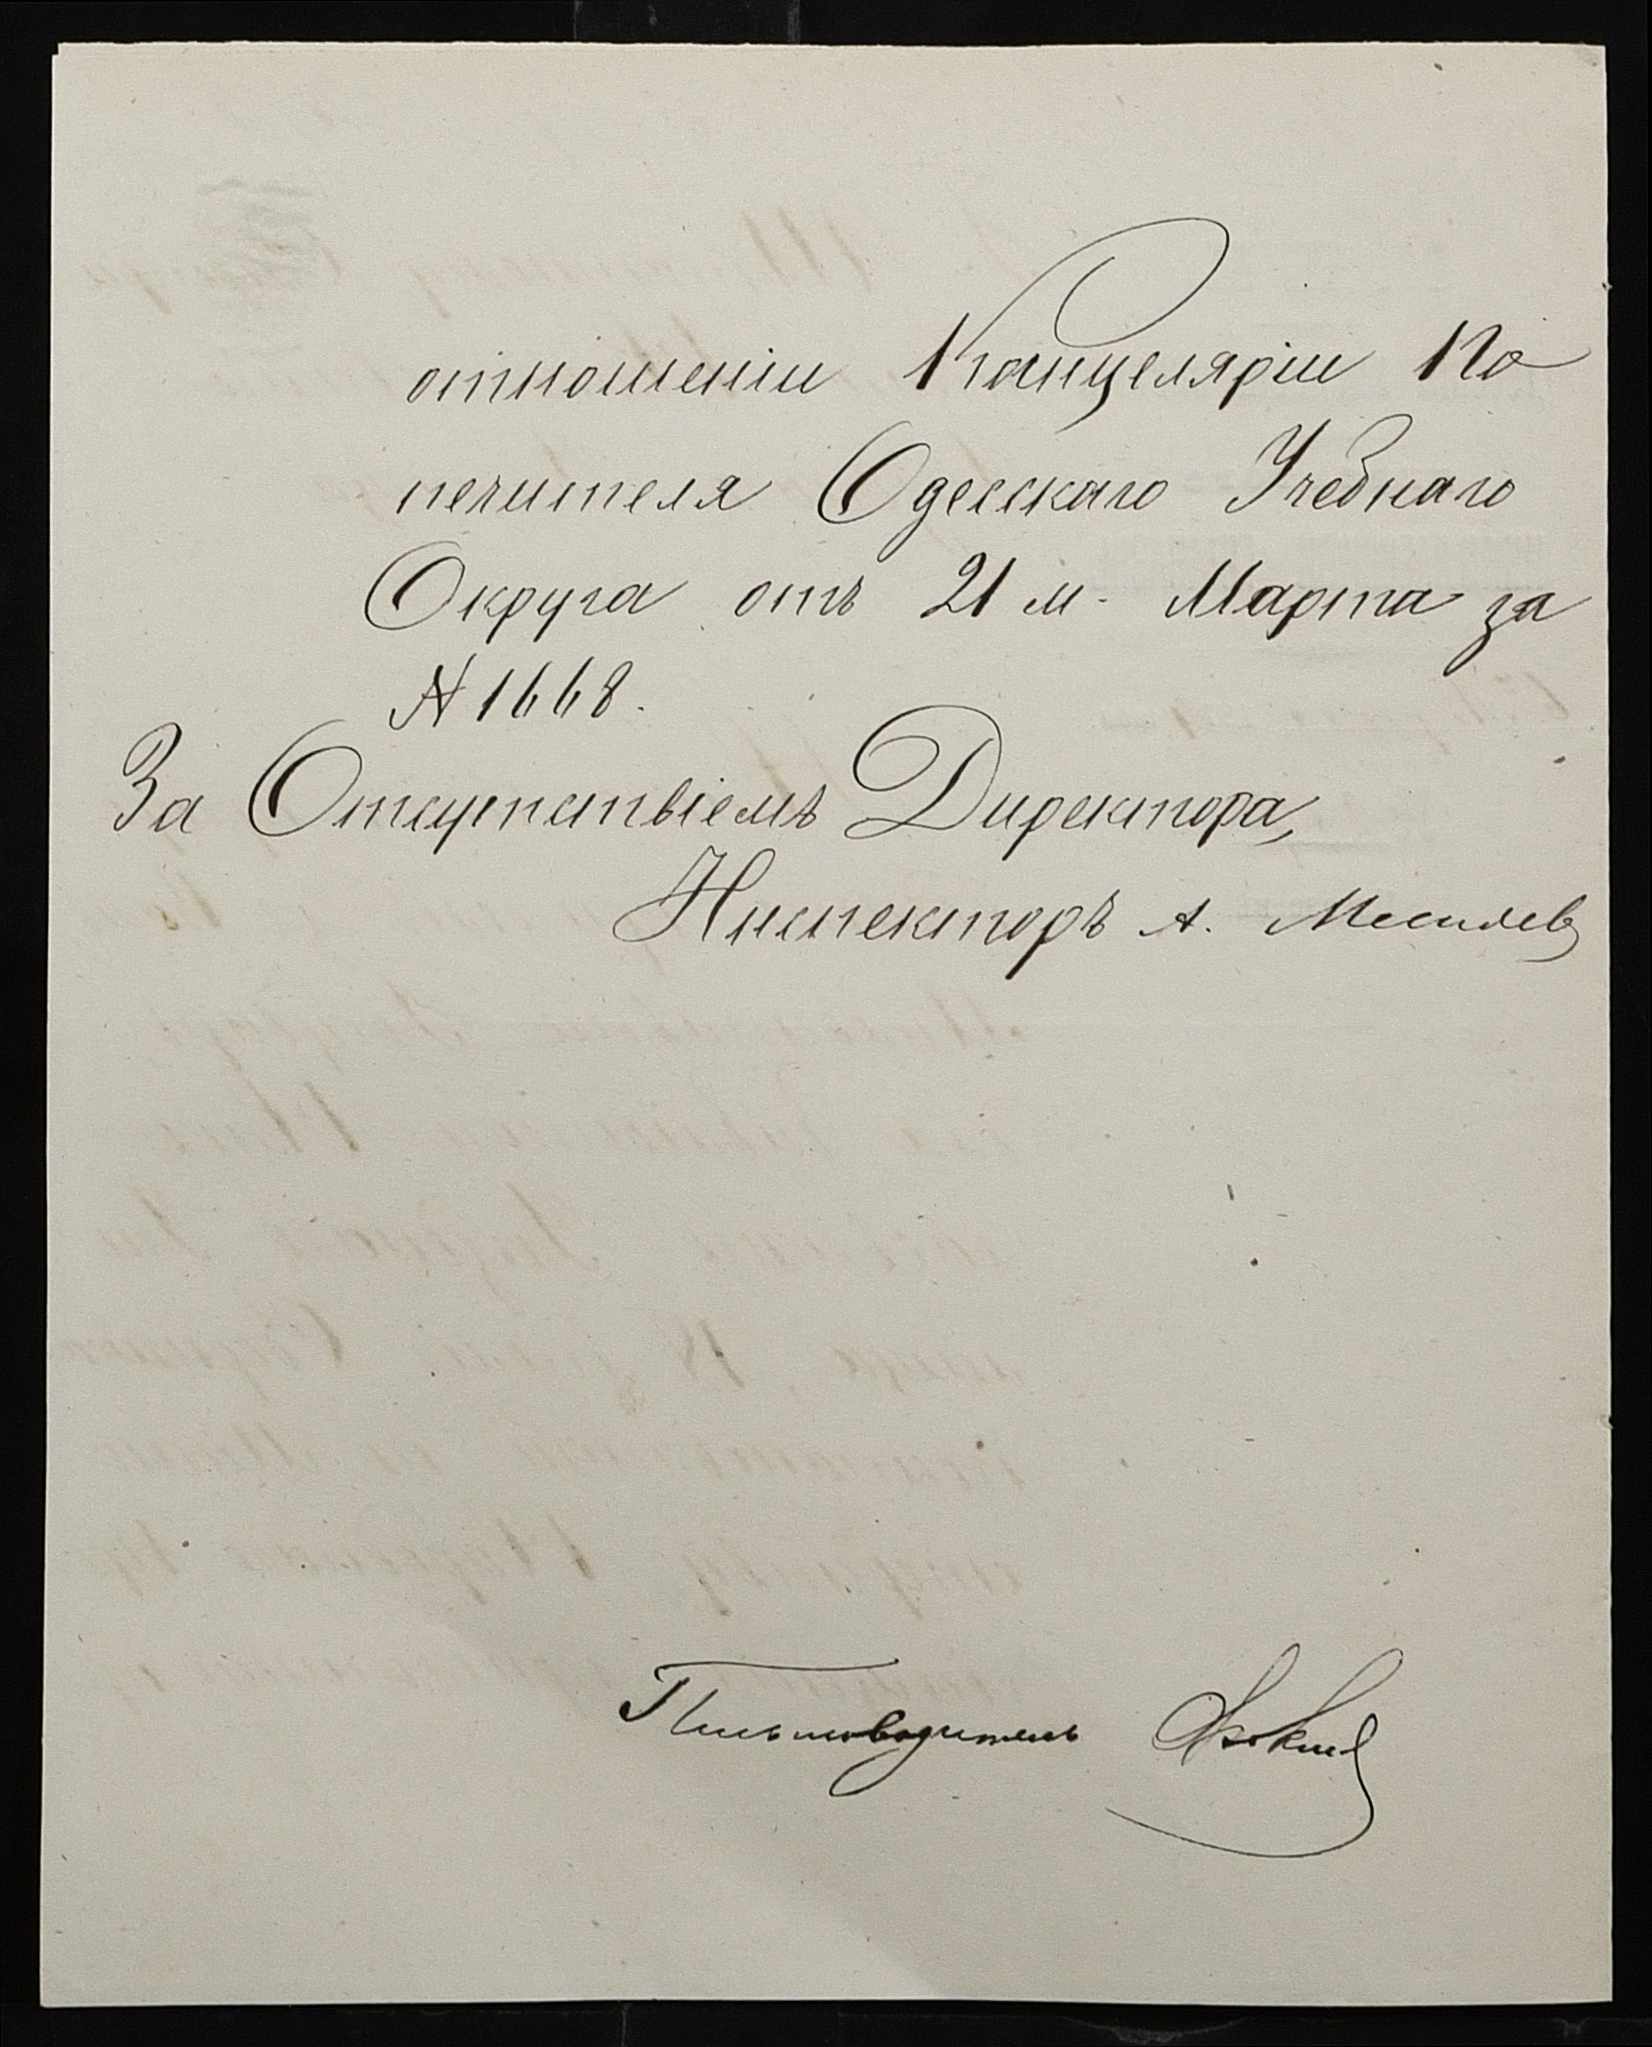 отношеніи Канцеляріи По
печителя Одесскаго Учебнаго
Округа отъ 21 м. Марта за
№ 1668.
За Отсутствіемъ Директора,
Инспекторъ А.
Письмоводитель